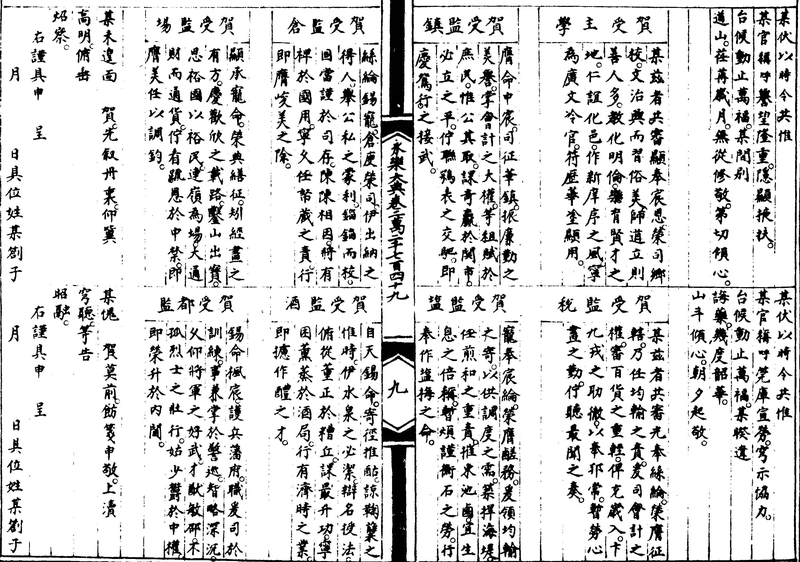 某伏以時令共惟
某官稱呼譽望隆重隱顯挾扶
台候動止萬福某間别
道山荏苒歲月無從修敬第切傾心
賀受主學
某茲者共審顯奉宸恩榮司鄉
校文治興而習俗美師道立則
善人多教化明倫樂育賢才之
地仁誼化邑作新庠序之風寧
為廣文冷官待歷華堂顯用
賀受監鎮
膺命中宸司征華鎮振廉勤之
美譽掌會計之大權等租賦於
庶民惟公其取課奇贏於闤市
必立之平佇聯鵷表之交馳即
慶鴛行之接武
某伏以時令共惟
某官稱呼筦庫宣勞穹示協力
台候動止萬福某睽違
誨藥幾度韶華
山斗傾心朝夕起敬
賀受監稅
某茲者共審光奉絲綸榮膺征
榷乃任均輸之責爰司會計之
權審百貨之重輕俾充歲入卞
九戎之助徹以奉邦常暫勞心
畫之勤佇聽最聞之奏
賀受監鹽
寵奉宸綸榮膺醝務爰領均輸
之寄以供調度之需築捍海堤
任煎和之重責摧東池鹵宜生
息之倍稱暫煩謹衡石之勞行
奉作鹽梅之命
永樂大典卷二萬二千七百四十九
九
賀受監倉
絲綸錫寵倉庾榮司伊出納之
得人舉公私之蒙利錙銖而校
固當謹於司存陳陳相因將有
裨於國用寧久任幣藏之責行
即膺峻美之除
賀受監場
顯承寵命榮典繕征矧經畫之
有方慶歡欣之載路鑿山出寶
思裕國以裕民連嶺為場大通
財而通貨佇看疏恩於中禁即
膺美任以調鈞
某未遑面 賀先叙丹衷仰冀
高明俯垂
炤察
右謹具申 呈
月 日具位姓某劄子
賀受監酒
自天錫命寄徑推酤諒麴糵之
惟時伊水泉之必潔辯名授法
俯從董正於糟丘課最升功寧
困薰蒸於酒局行有濟時之業
即據作醴之才
賀受都監
錫命楓宸護兵藩府職爰司於
訓練事兼掌於警巡智略深沉
久仰將軍之好武才猷敏邵不
孤烈士之壯行姑少鬱於中權
即榮升於內閣
某愧 賀莫前飭箋申敬上瀆
穹聽等告
昭融
右謹具申 呈
月 日具位姓某劄子